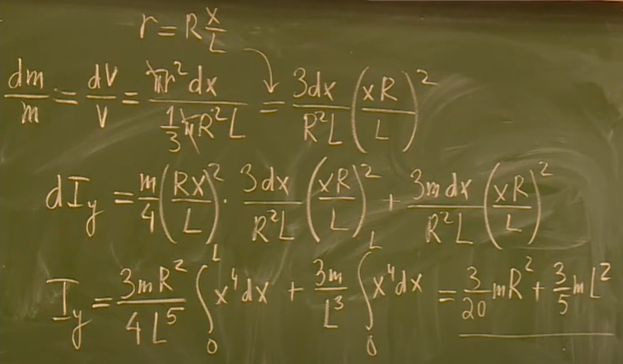 r = R x/L
dm/m = dV/V = πr² dx / (1/3 πR²L) = 3dx/(R²L) (xR/L)²
dI_y = m/4 (Rx/L)² · 3dx/(R²L) (xR/L)² + 3m dx/(R²L) (xR/L)²
I_y = 3mR²/(4L⁵) ∫₀ᴸ x⁴dx + 3m/L³ ∫₀ᴸ x⁴dx = 3/20 mR² + 3/5 mL²